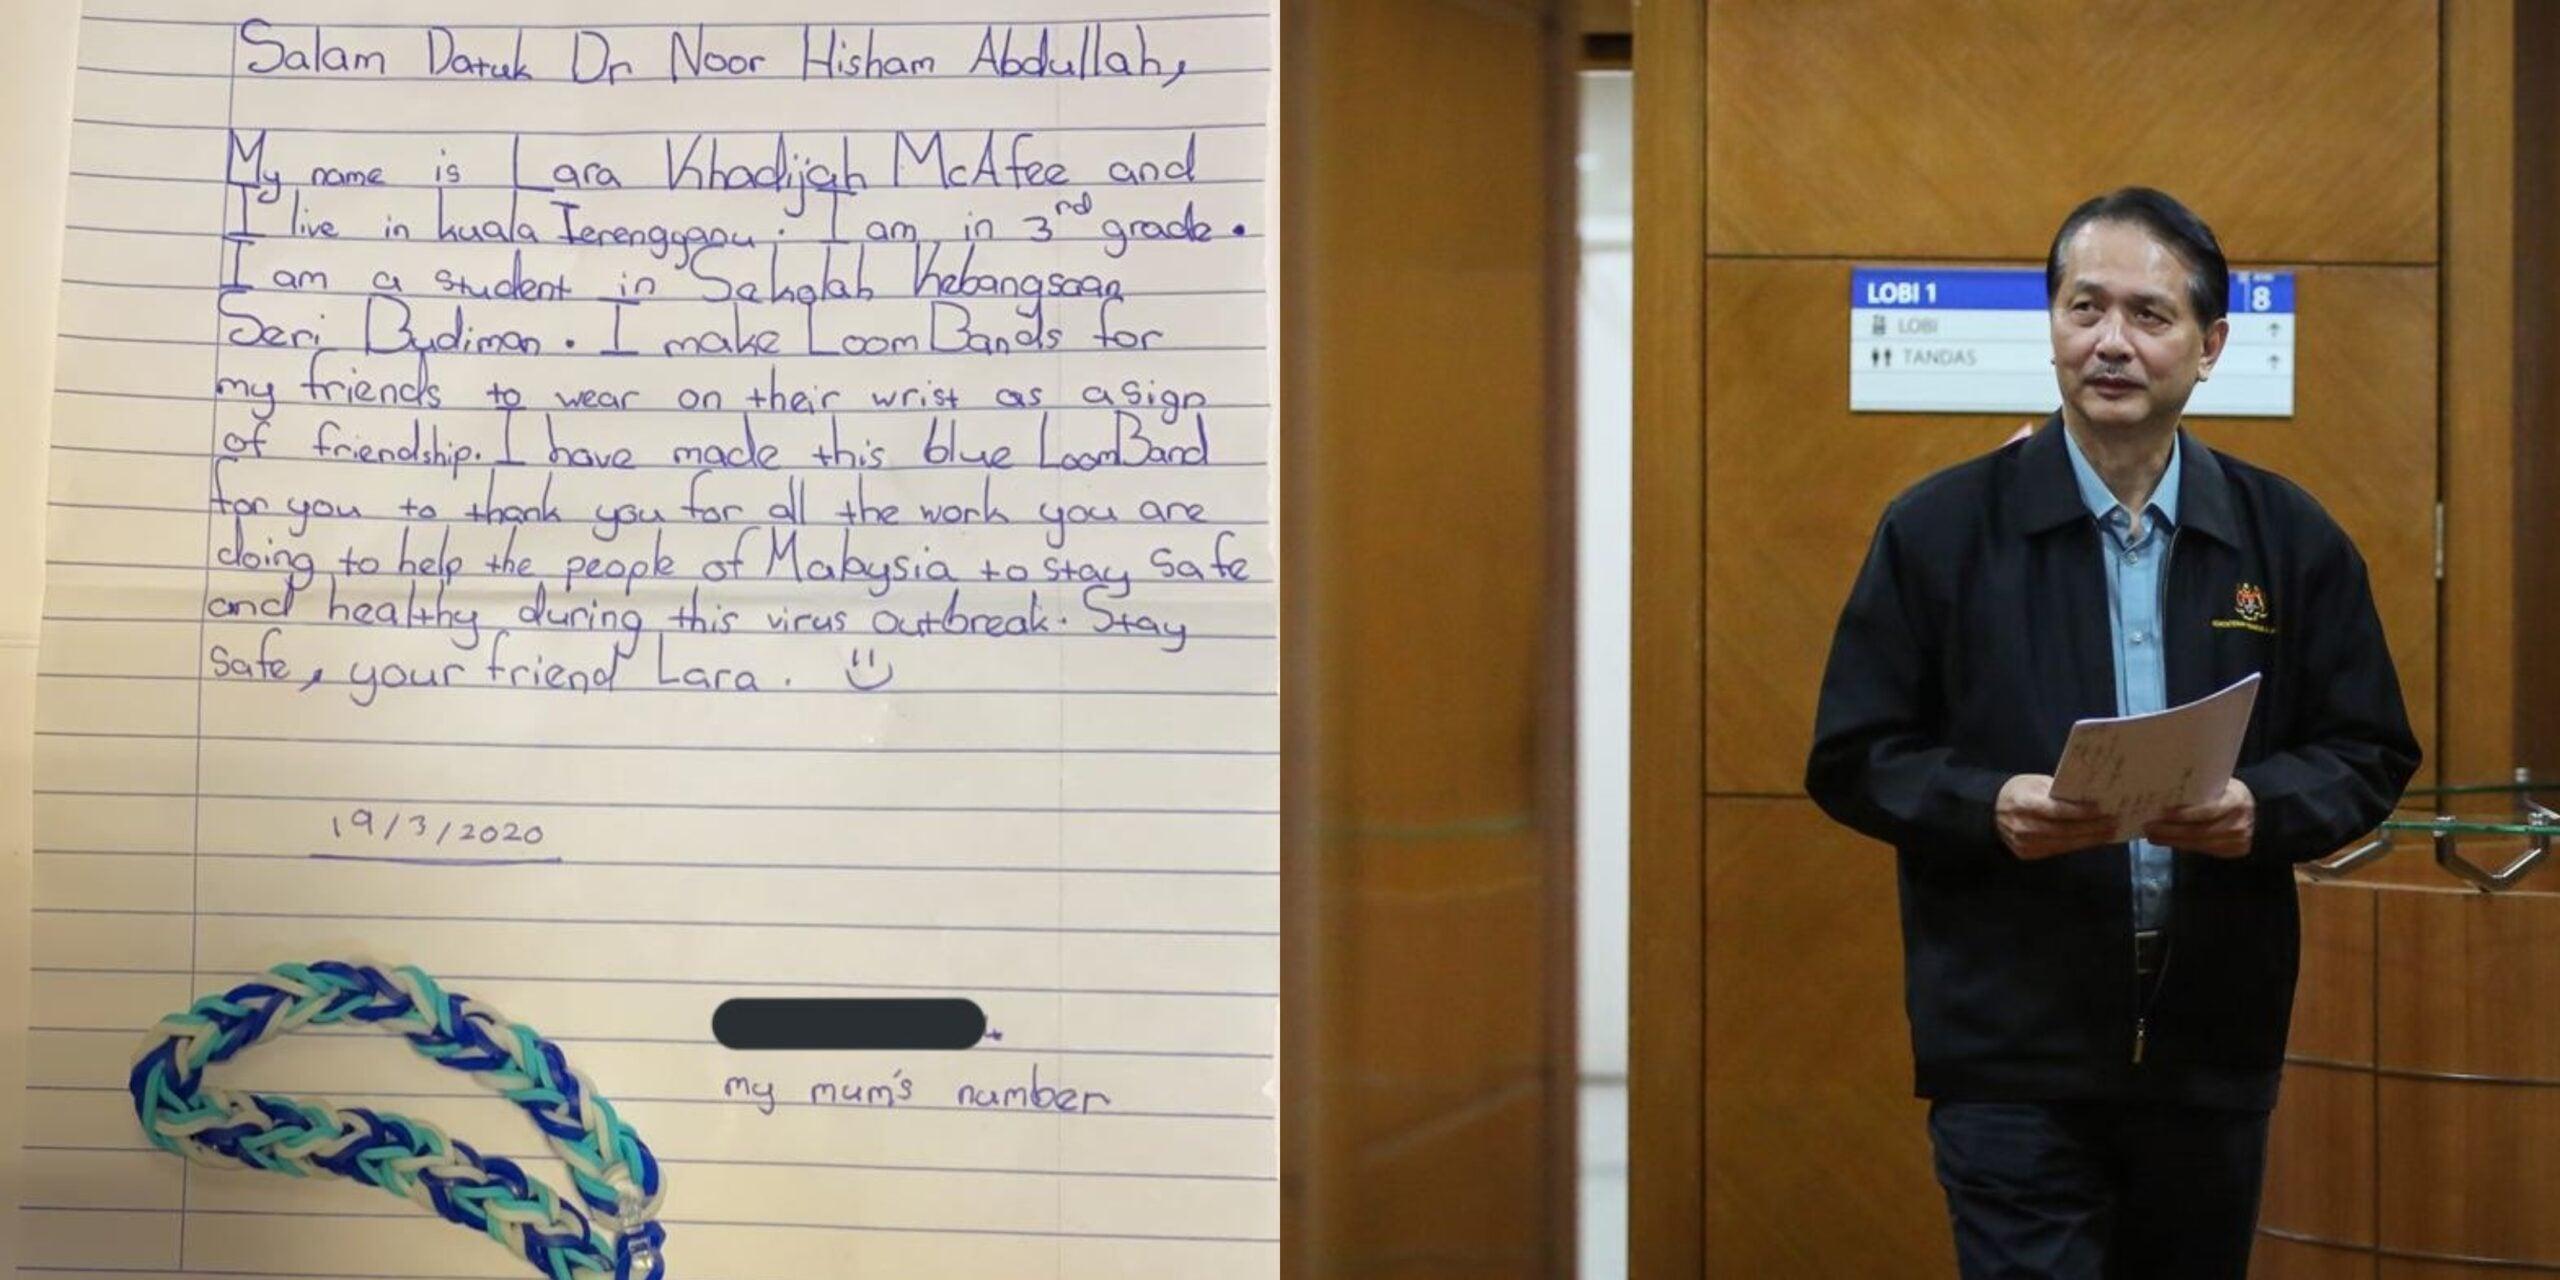 Salam Datuk Dr Noor Hisham Abdullah,
My name is Lara Khadijah McAfee and
I live in kuala Terengganu. I am in 3rd grade.
I am a student in Sekolah Kebangsaan
Seri Budiman. I make Loom Bands for
my friends to wear on their wrist as a sign
of friendship. I have made this blue LoomBand
for you to thank you for all the work you are
doing to help the people of Malaysia to stay safe
and healthy during this virus outbreak. Stay
safe, your friend Lara.
19/3/2020
my mum's number
LOBI 1
8
LOBI
TANDAS